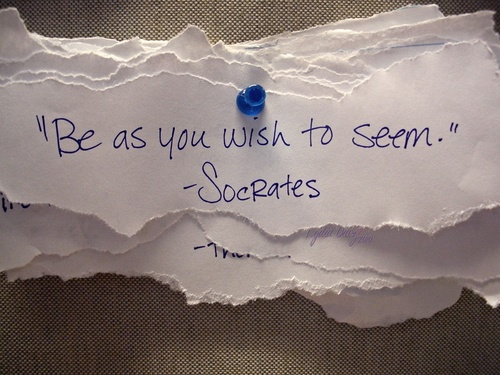 "Be as you wish to seem."
-Socrates